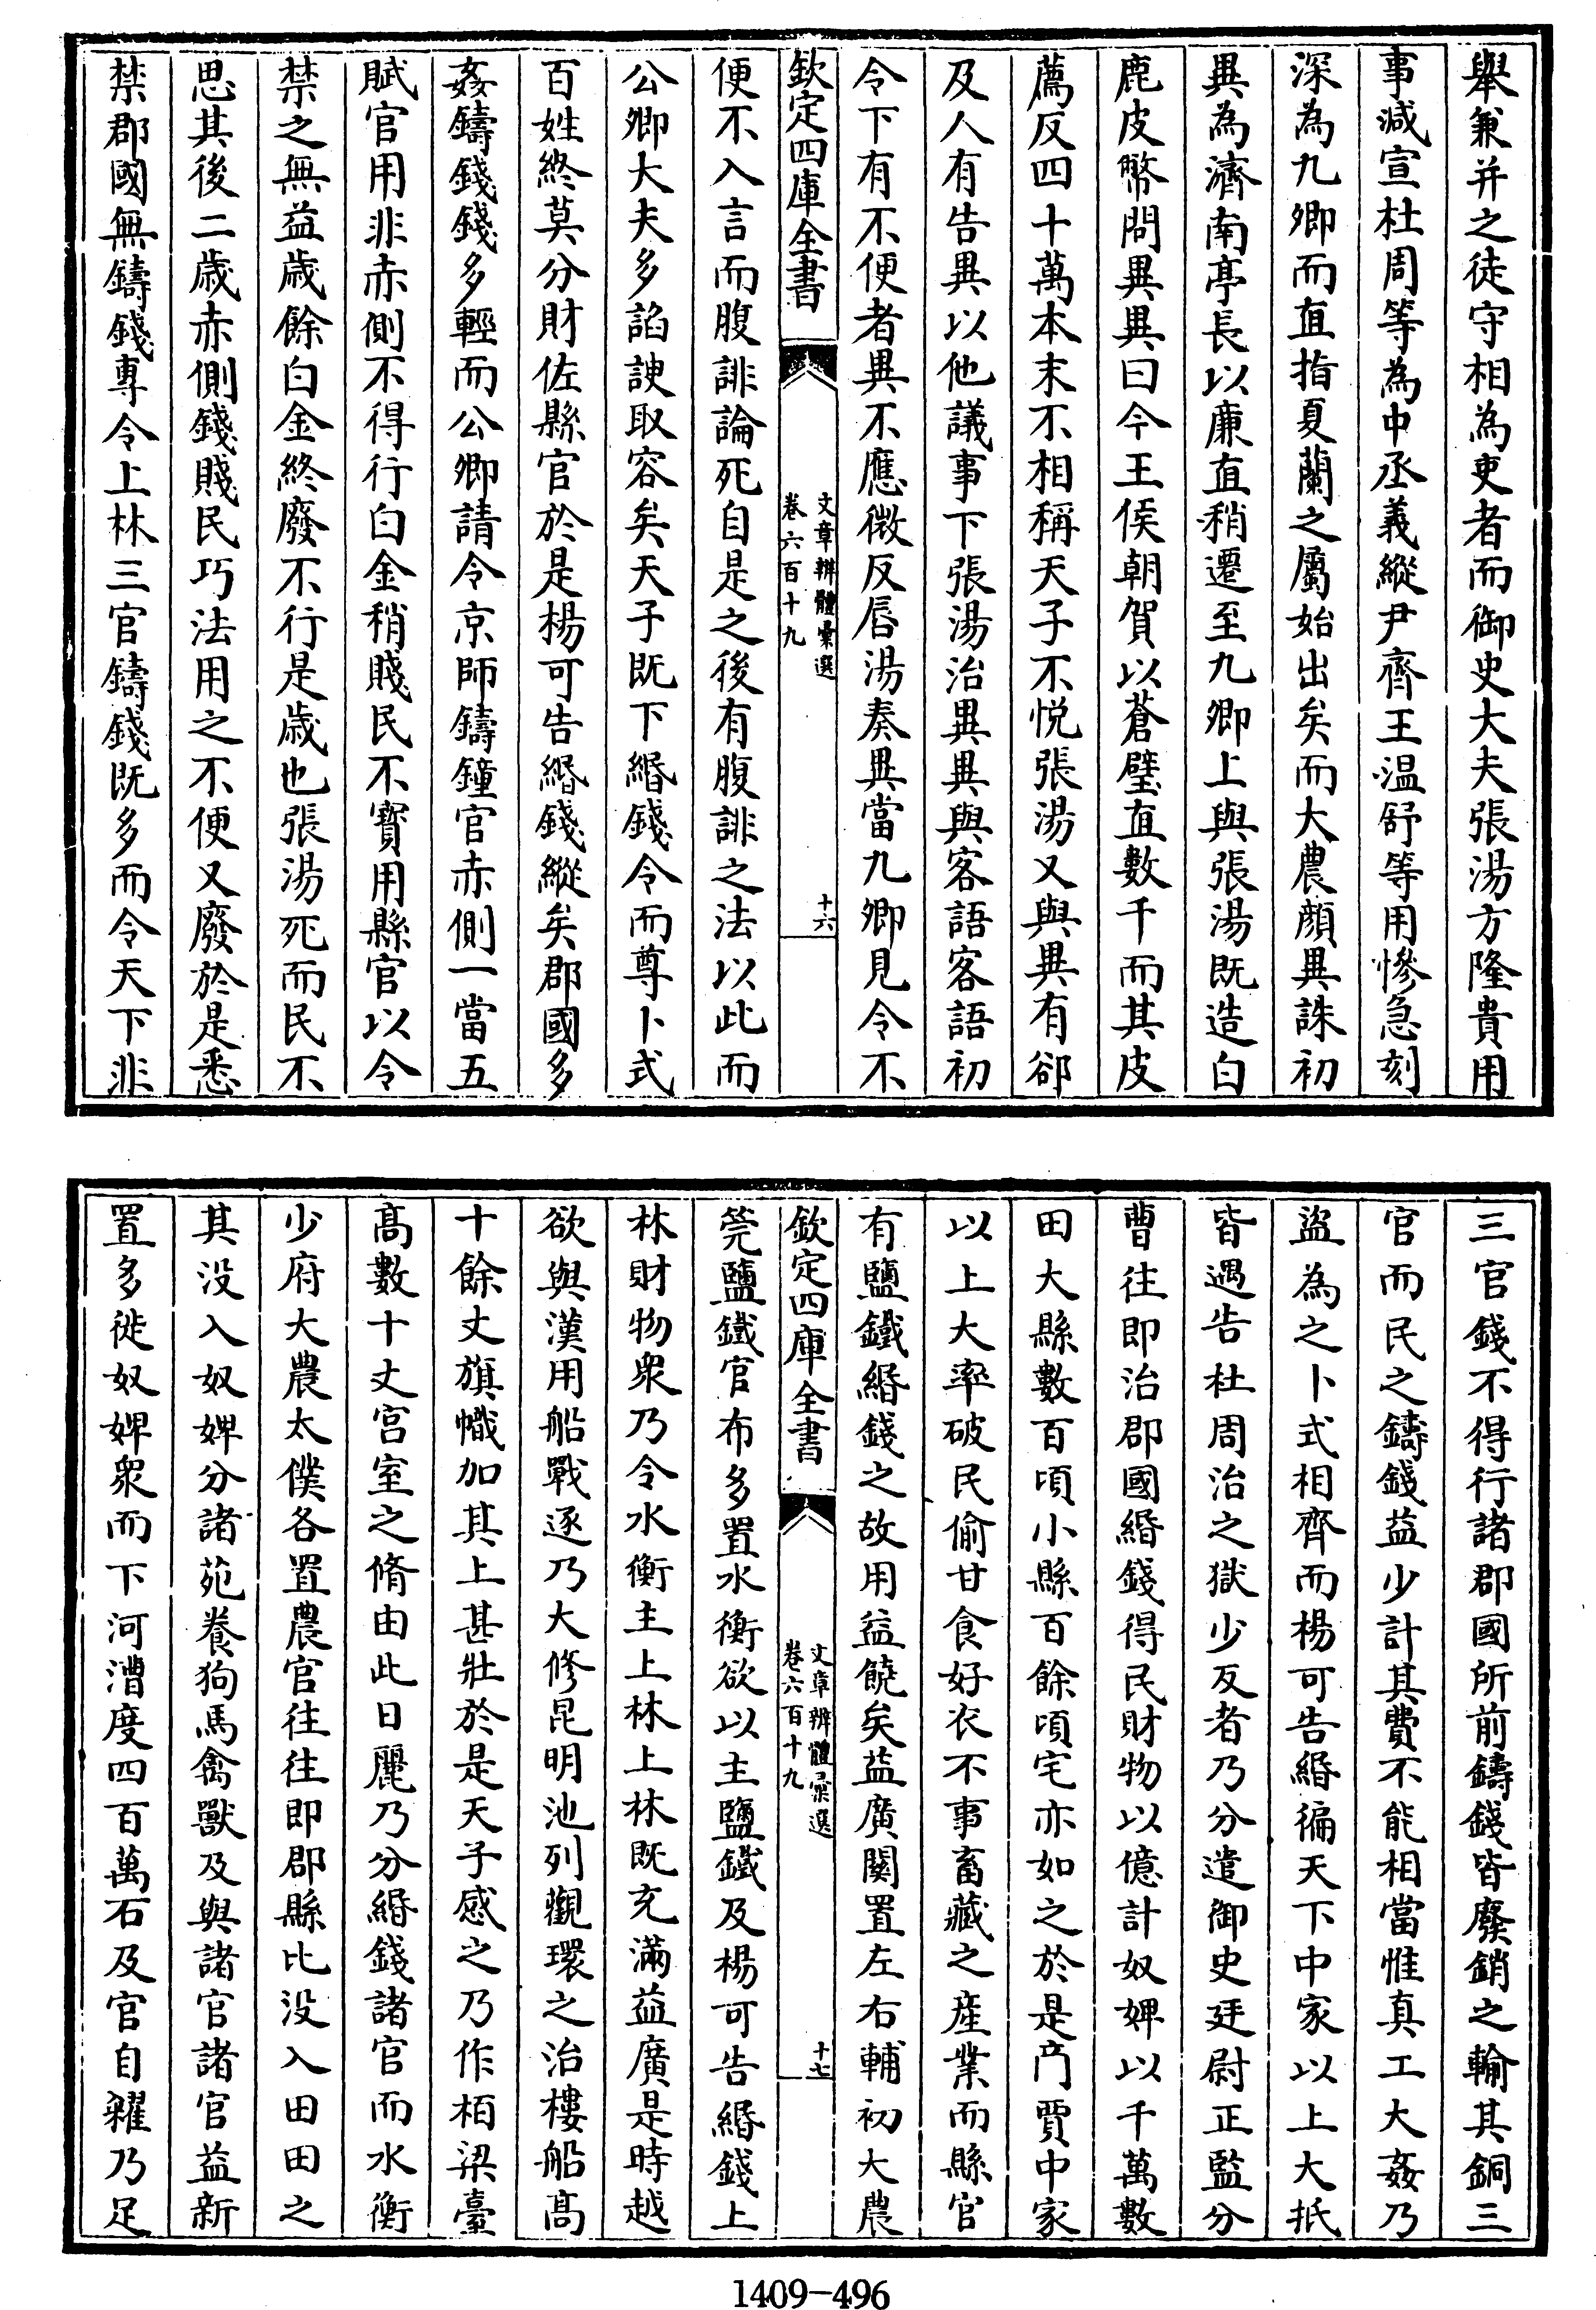 舉兼并之徒守相為吏者而御史大夫張湯方隆貴用
事減宣杜周等為中丞義縱尹齊王温舒等用慘急刻
深為九卿而直指夏蘭之屬始出矣而大農顔異誅初
異為濟南亭長以廉直稍遷至九卿上與張湯既造白
鹿皮幣問異異曰今王侯朝賀以蒼璧直數千而其皮
薦反四十萬本末不相稱天子不悅張湯又與異有郤
及人有告異以他議事下張湯治異異與客語客語初
令下有不便者異不應微反唇湯奏異當九卿見令不
欽定四庫全書
文章辨體彙選
卷六百十九
十六
便不入言而腹誹論死自是之後有腹誹之法以此而
公卿大夫多諂諛取容矣天子既下緡錢令而尊卜式
百姓終莫分財佐縣官於是楊可告緡錢縱矣郡國多
姦鑄錢錢多輕而公卿請令京師鑄鐘官赤側一當五
賦官用非赤側不得行白金稍賤民不寶用縣官以令
禁之無益歲餘白金終廢不行是歲也張湯死而民不
思其後二歲赤側錢賤民巧法用之不便又廢於是悉
禁郡國無鑄錢專令上林三官鑄錢既多而令天下非
三官錢不得行諸郡國所前鑄錢皆廢銷之輸其銅三
官而民之鑄錢益少計其費不能相當惟真工大姦乃
盜為之卜式相齊而楊可告緡徧天下中家以上大抵
皆遇告杜周治之獄少反者乃分遣御史廷尉正監分
曹往即治郡國緡錢得民財物以億計奴婢以千萬數
田大縣數百頃小縣百餘頃宅亦如之於是商賈中家
以上大率破民偷甘食好衣不事畜藏之產業而縣官
有鹽鐵緡錢之故用益饒矣益廣關置左右輔初大農
欽定四庫全書
文章辨體彙選
卷六百十九
十七
筦鹽鐵官布多置水衡欲以主鹽鐵及楊可告緡錢上
林財物衆乃令水衡主上林上林既充滿益廣是時越
欲與漢用船戰逐乃大修昆明池列觀環之治樓船高
十餘丈旗幟加其上甚壯於是天子感之乃作栢梁臺
高數十丈宫室之脩由此日麗乃分緡錢諸官而水衡
少府大農太僕各置農官往往即郡縣比没入田田之
其没入奴婢分諸苑養狗馬禽獸及與諸官諸官益新
置多徙奴婢衆而下河漕度四百萬石及官自糴乃足
1409-496